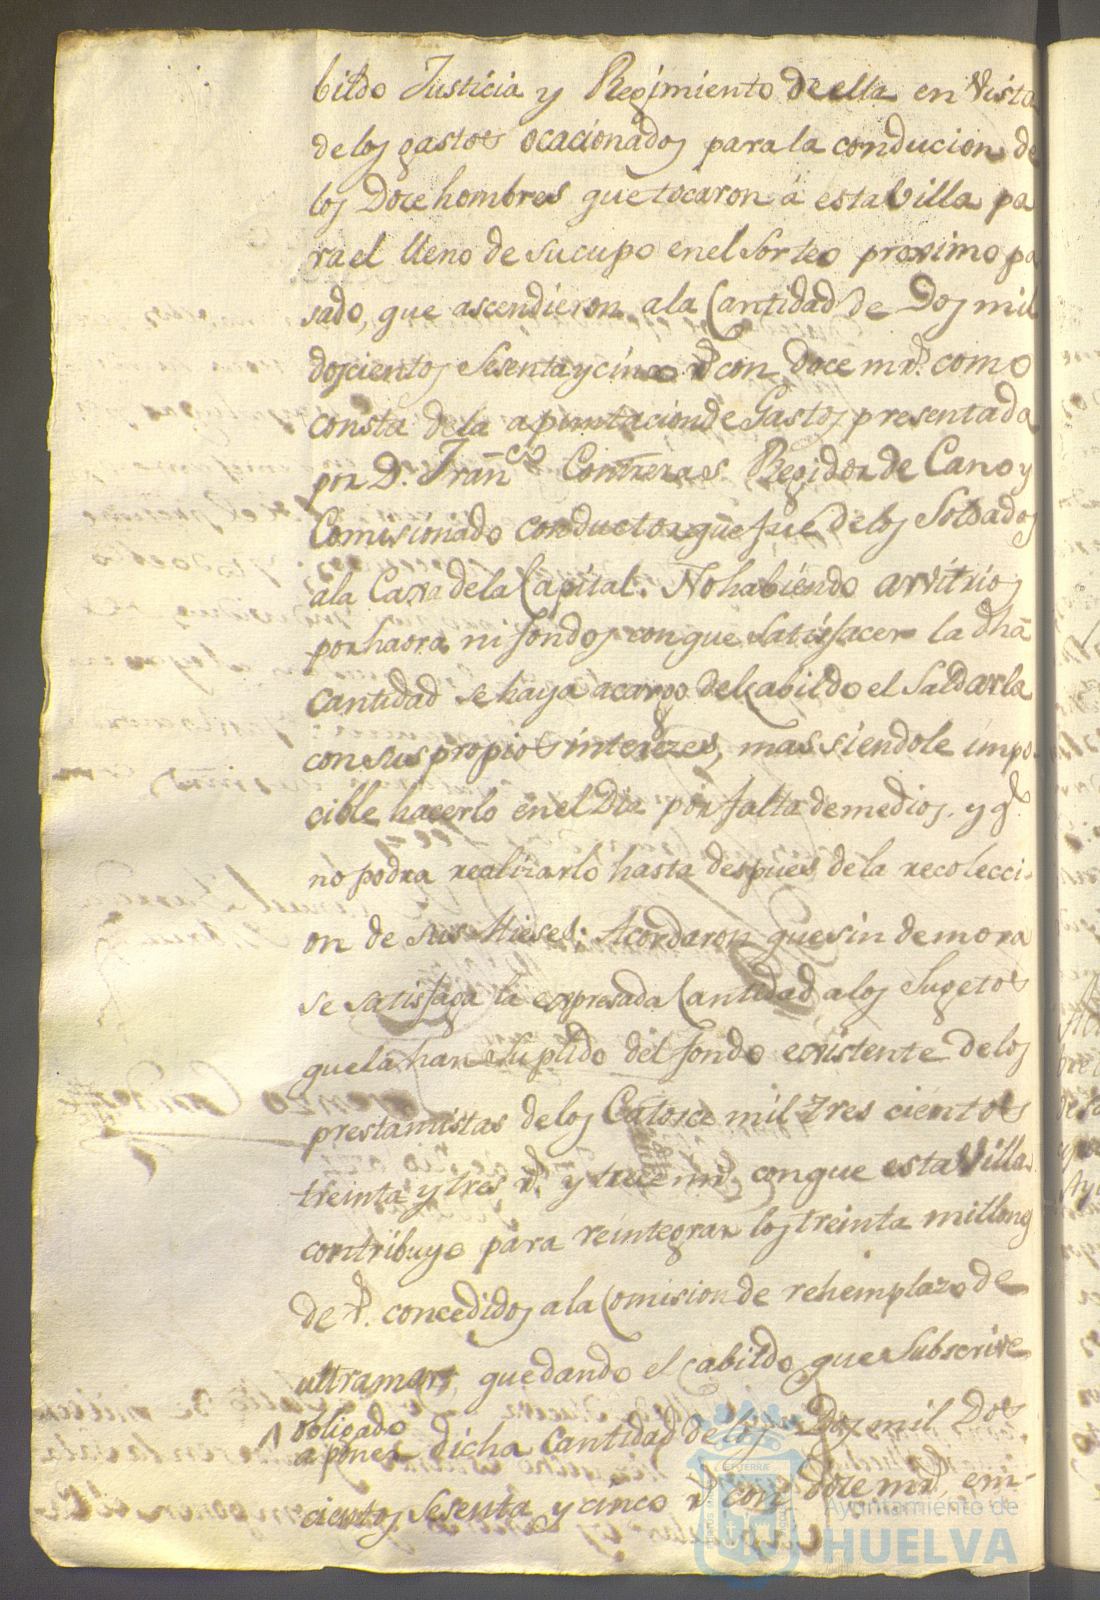 bildo Justicia y Regimiento de ella en Vista
de los gastos ocacionados para la conducion de
los Doce hombres que tocaron á esta Villa pa
ra el lleno de su cupo en el Sorteo proximo pa
sado, que ascendieron ala Cantidad de Dos mil
doscientos Sesenta y cinco r.^s con doce mr.^s como
consta de la apuntacion de Gastos presentada
por D. Fran^co Contreras Regidor de Cano y
Comisionado conductor que fue de los Soldados
ala Caxa dela Capital. No habiendo arvitrios
por haora ni fondos con que satisfacer la dhã
cantidad se haya acargo del Cabildo el Saldarla
con sus propios interezes, mas siendole impo-
cible hacerlo en el Dia por falta de medios. y q^e
no podra realizarlo hasta despues dela recolecci-
on de sus Mieses: Acordaron que sin demora
se satisfaga la expresada Cantidad alos Sugetos
que la han suplido del fondo existente de los
prestamistas de los Catorce mil tres cientos
treinta y tres r.^s y trece mr.^s con que esta Villa
contribuyo para reintegrar los treinta millones
de r.^s concedidos ala Comision de rehemplazo de
ultramar, quedando el cabildo que Subscrive
obligado
a poner dicha Cantidad de los Dos mil Dos
cientos sesenta y cinco r.^s con doce mr.^s em-
Ayuntamiento de
HUELVA